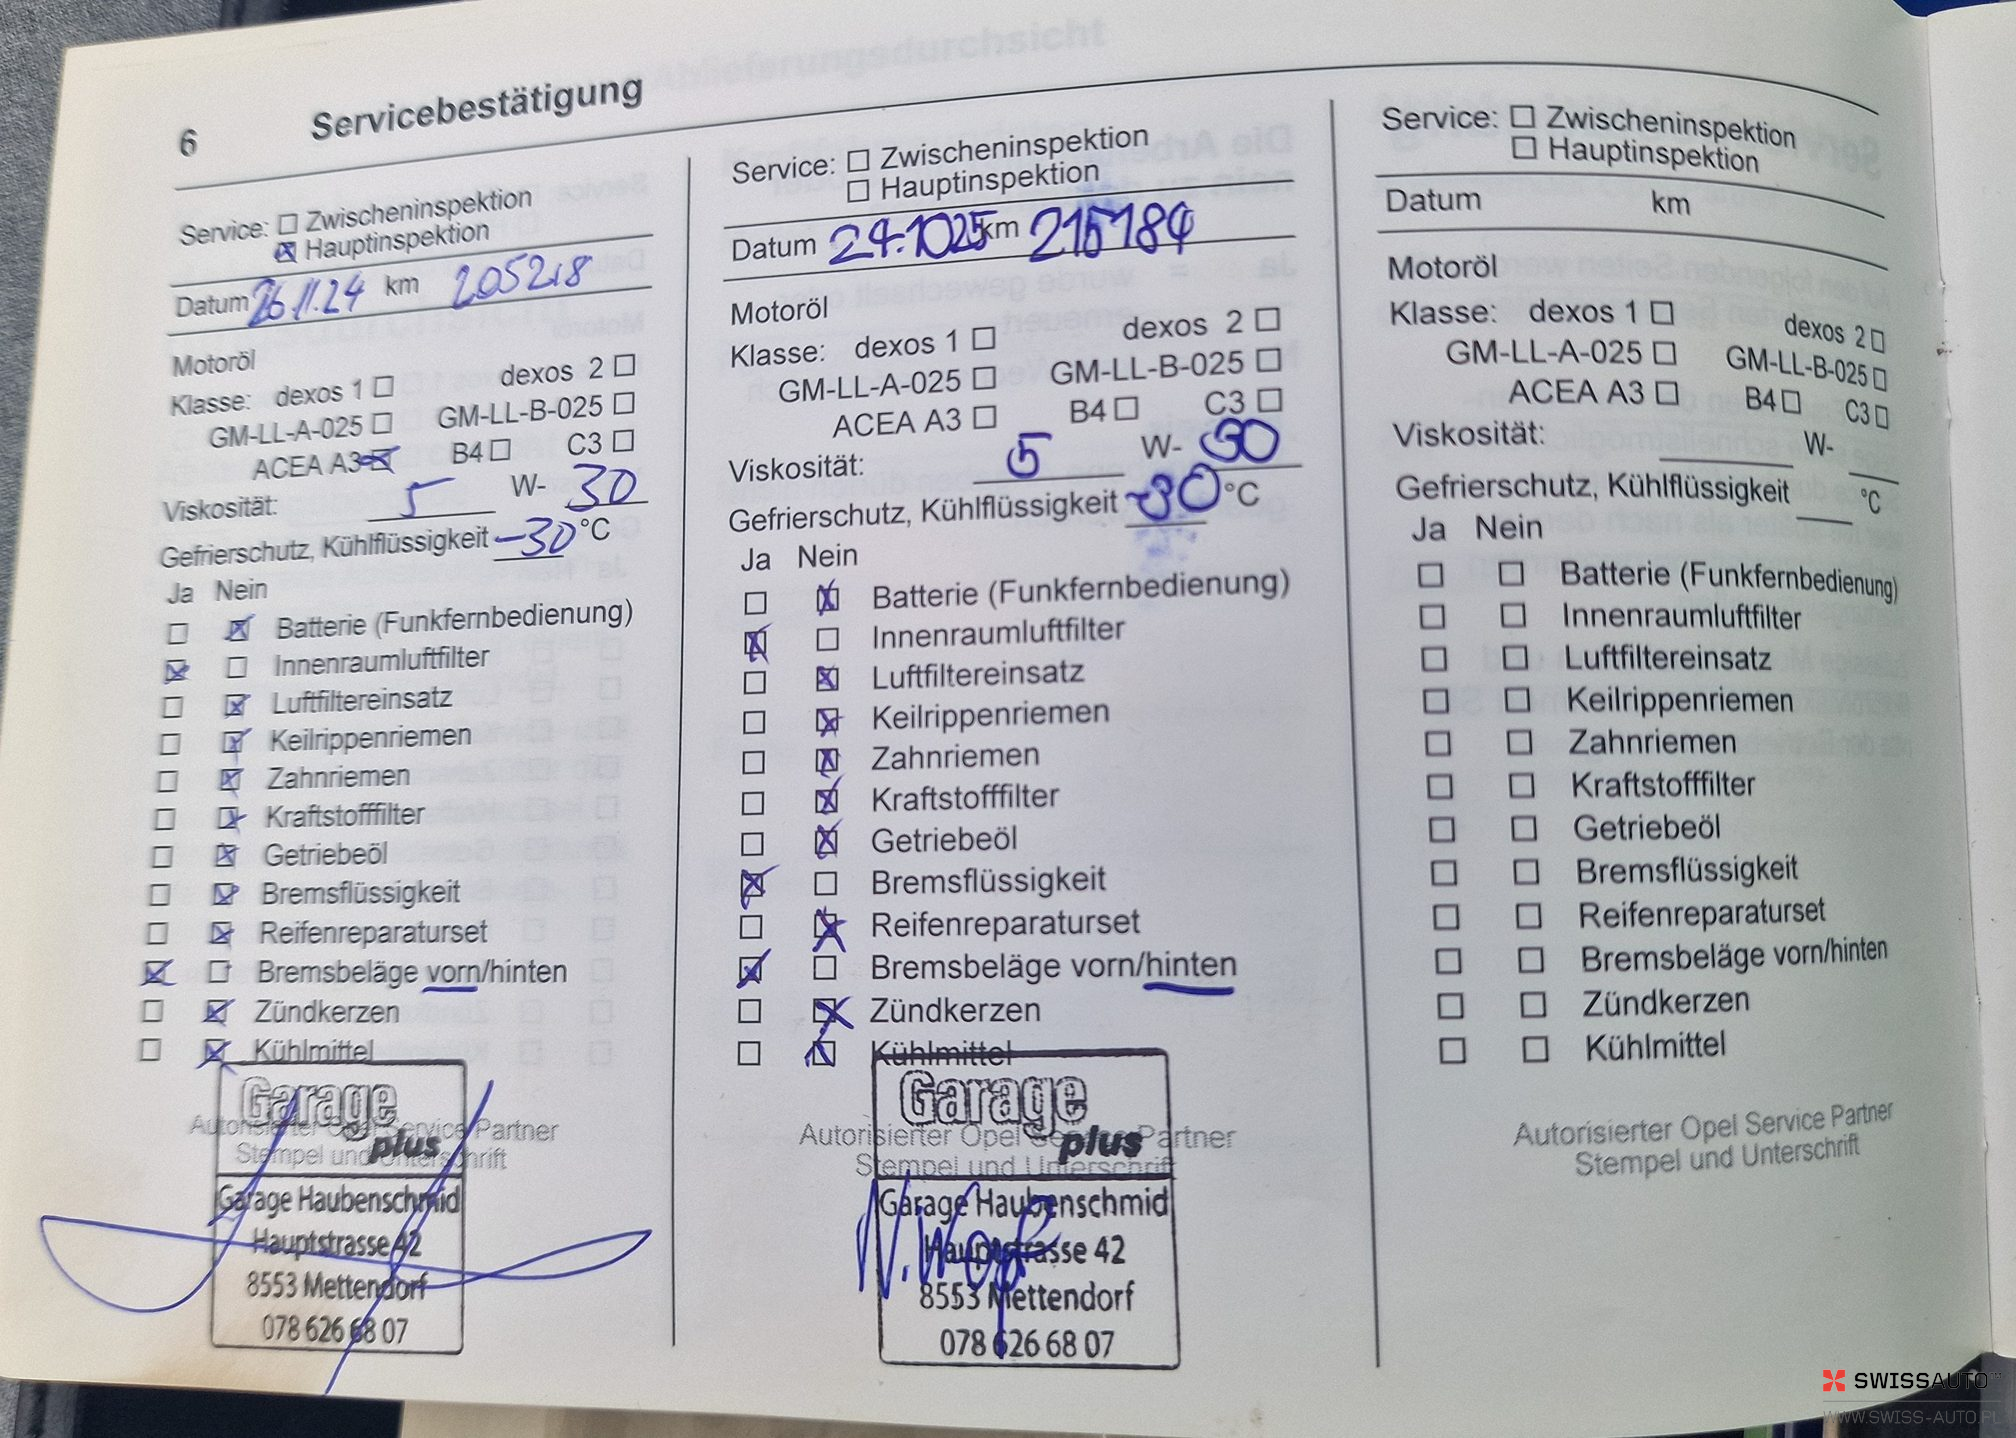 6 Servicebestätigung
Service: Zwischeninspektion
Hauptinspektion
Datum 26.11.24 km 205218
Motoröl
Klasse: dexos 1 dexos 2
GM-LL-A-025 GM-LL-B-025
ACEA A3 B4 C3
Viskosität: 5 W- 30
Gefrierschutz, Kühlflüssigkeit -30 °C
Ja Nein
Batterie (Funkfernbedienung)
Innenraumluftfilter
Luftfiltereinsatz
Keilrippenriemen
Zahnriemen
Kraftstofffilter
Getriebeöl
Bremsflüssigkeit
Reifenreparaturset
Bremsbeläge vorn/hinten
Zündkerzen
Kühlmittel
Garage
plus
Autorisierter Opel Service Partner
Stempel und Unterschrift
Garage Haubenschmid
Hauptstrasse 42
8553 Mettendorf
078 626 68 07
Service: Zwischeninspektion
Hauptinspektion
Datum 24.1025 km 215184
Motoröl
Klasse: dexos 1 dexos 2
GM-LL-A-025 GM-LL-B-025
ACEA A3 B4 C3
Viskosität: 5 W- 30
Gefrierschutz, Kühlflüssigkeit -30 °C
Ja Nein
Batterie (Funkfernbedienung)
Innenraumluftfilter
Luftfiltereinsatz
Keilrippenriemen
Zahnriemen
Kraftstofffilter
Getriebeöl
Bremsflüssigkeit
Reifenreparaturset
Bremsbeläge vorn/hinten
Zündkerzen
Kühlmittel
Garage
plus
Autorisierter Opel Service Partner
Stempel und Unterschrift
Garage Haubenschmid
Hauptstrasse 42
8553 Mettendorf
078 626 68 07
Service: Zwischeninspektion
Hauptinspektion
Datum km
Motoröl
Klasse: dexos 1 dexos 2
GM-LL-A-025 GM-LL-B-025
ACEA A3 B4 C3
Viskosität: W-
Gefrierschutz, Kühlflüssigkeit °C
Ja Nein
Batterie (Funkfernbedienung)
Innenraumluftfilter
Luftfiltereinsatz
Keilrippenriemen
Zahnriemen
Kraftstofffilter
Getriebeöl
Bremsflüssigkeit
Reifenreparaturset
Bremsbeläge vorn/hinten
Zündkerzen
Kühlmittel
Autorisierter Opel Service Partner
Stempel und Unterschrift
SWISSAUTO
WWW.SWISS-AUTO.PL